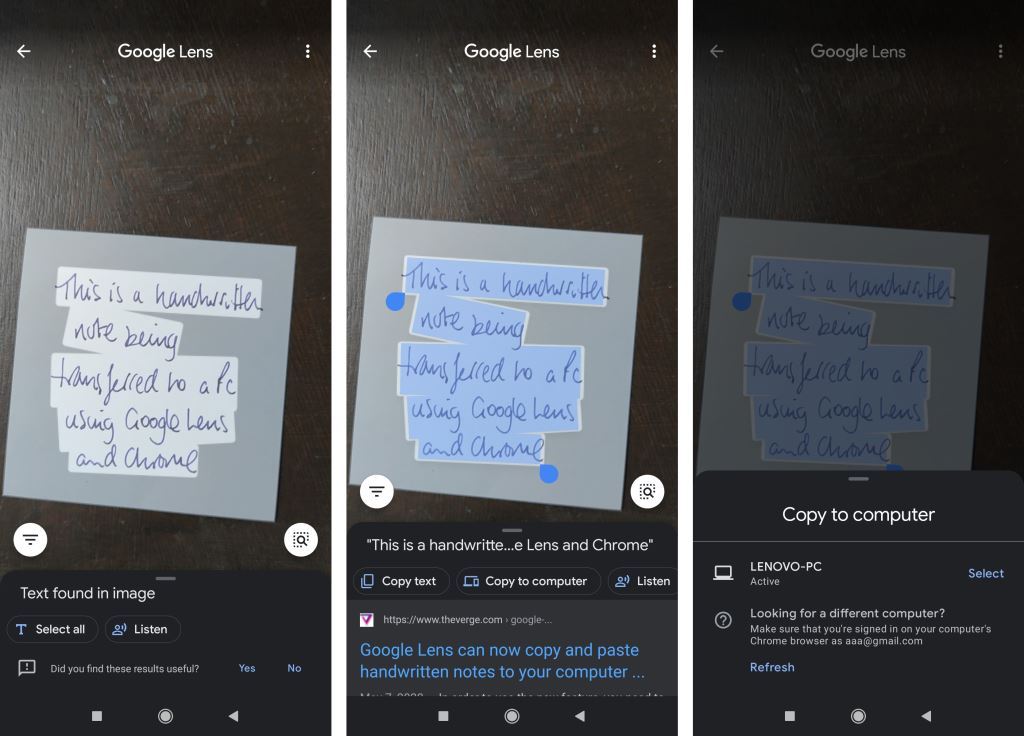 Google Lens
This is a handwritten
note being
transferred to a Pc
using Google Lens
and Chrome
Text found in image
Select all
Listen
Did you find these results useful?
Yes
No
Google Lens
This is a handwritten
note being
transferred to a Pc
using Google Lens
and Chrome
"This is a handwritte...e Lens and Chrome"
Copy text
Copy to computer
Listen
https://www.theverge.com › google-...
Google Lens can now copy and paste
handwritten notes to your computer ...
Google Lens
This is a handwritten
note being
transferred to a Pc
using Google Lens
and Chrome
Copy to computer
LENOVO-PC
Active
Select
Looking for a different computer?
Make sure that you're signed in on your computer's
Chrome browser as aaa@gmail.com
Refresh